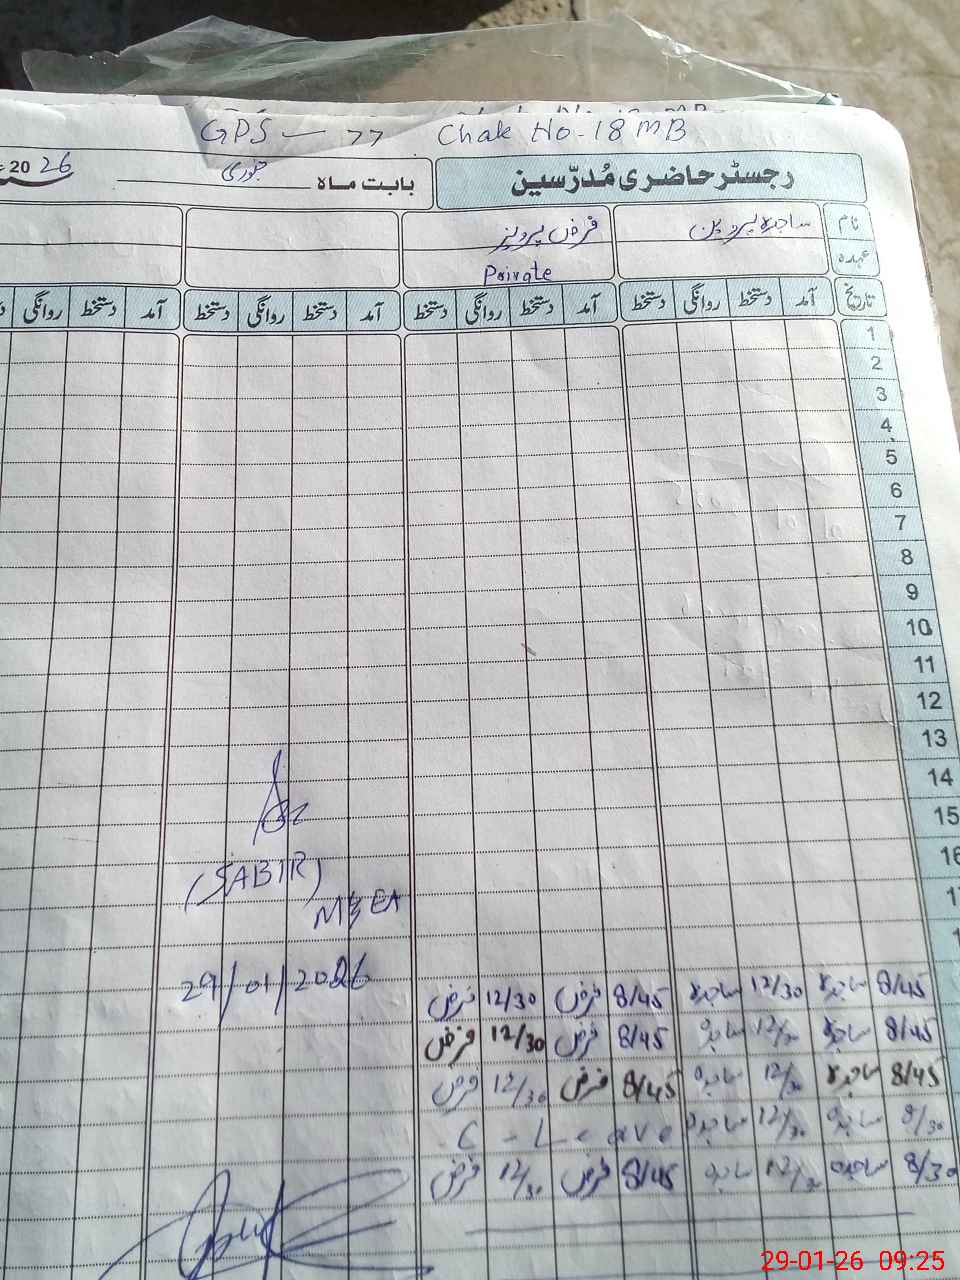 GPS — 77 Chak No-18 MB
رجسٹر حاضری مُدرّسین بابت ماہ جنوری 2026
نام ساجدہ پروین فرض پرویز
عہدہ Private
تاریخ آمد دستخط روانگی دستخط آمد دستخط روانگی دستخط آمد دستخط روانگی دستخط آمد دستخط روانگی
1
2
3
4
5
6
7
8
9
10
11
12
13
14
15
16
(SABIR)
MEA
29/01/2026
8/45 ساجدہ 12/30 ساجدہ 8/45 فرض 12/30 فرض
8/45 ساجدہ 12/30 ساجدہ 8/45 فرض 12/30 فرض
8/45 ساجدہ 12/30 ساجدہ 8/45 فرض 12/30 فرض
8/30 ساجدہ 12/30 ساجدہ C-Leave
8/30 ساجدہ 12/30 ساجدہ 8/45 فرض 12/30 فرض
29-01-26 09:25